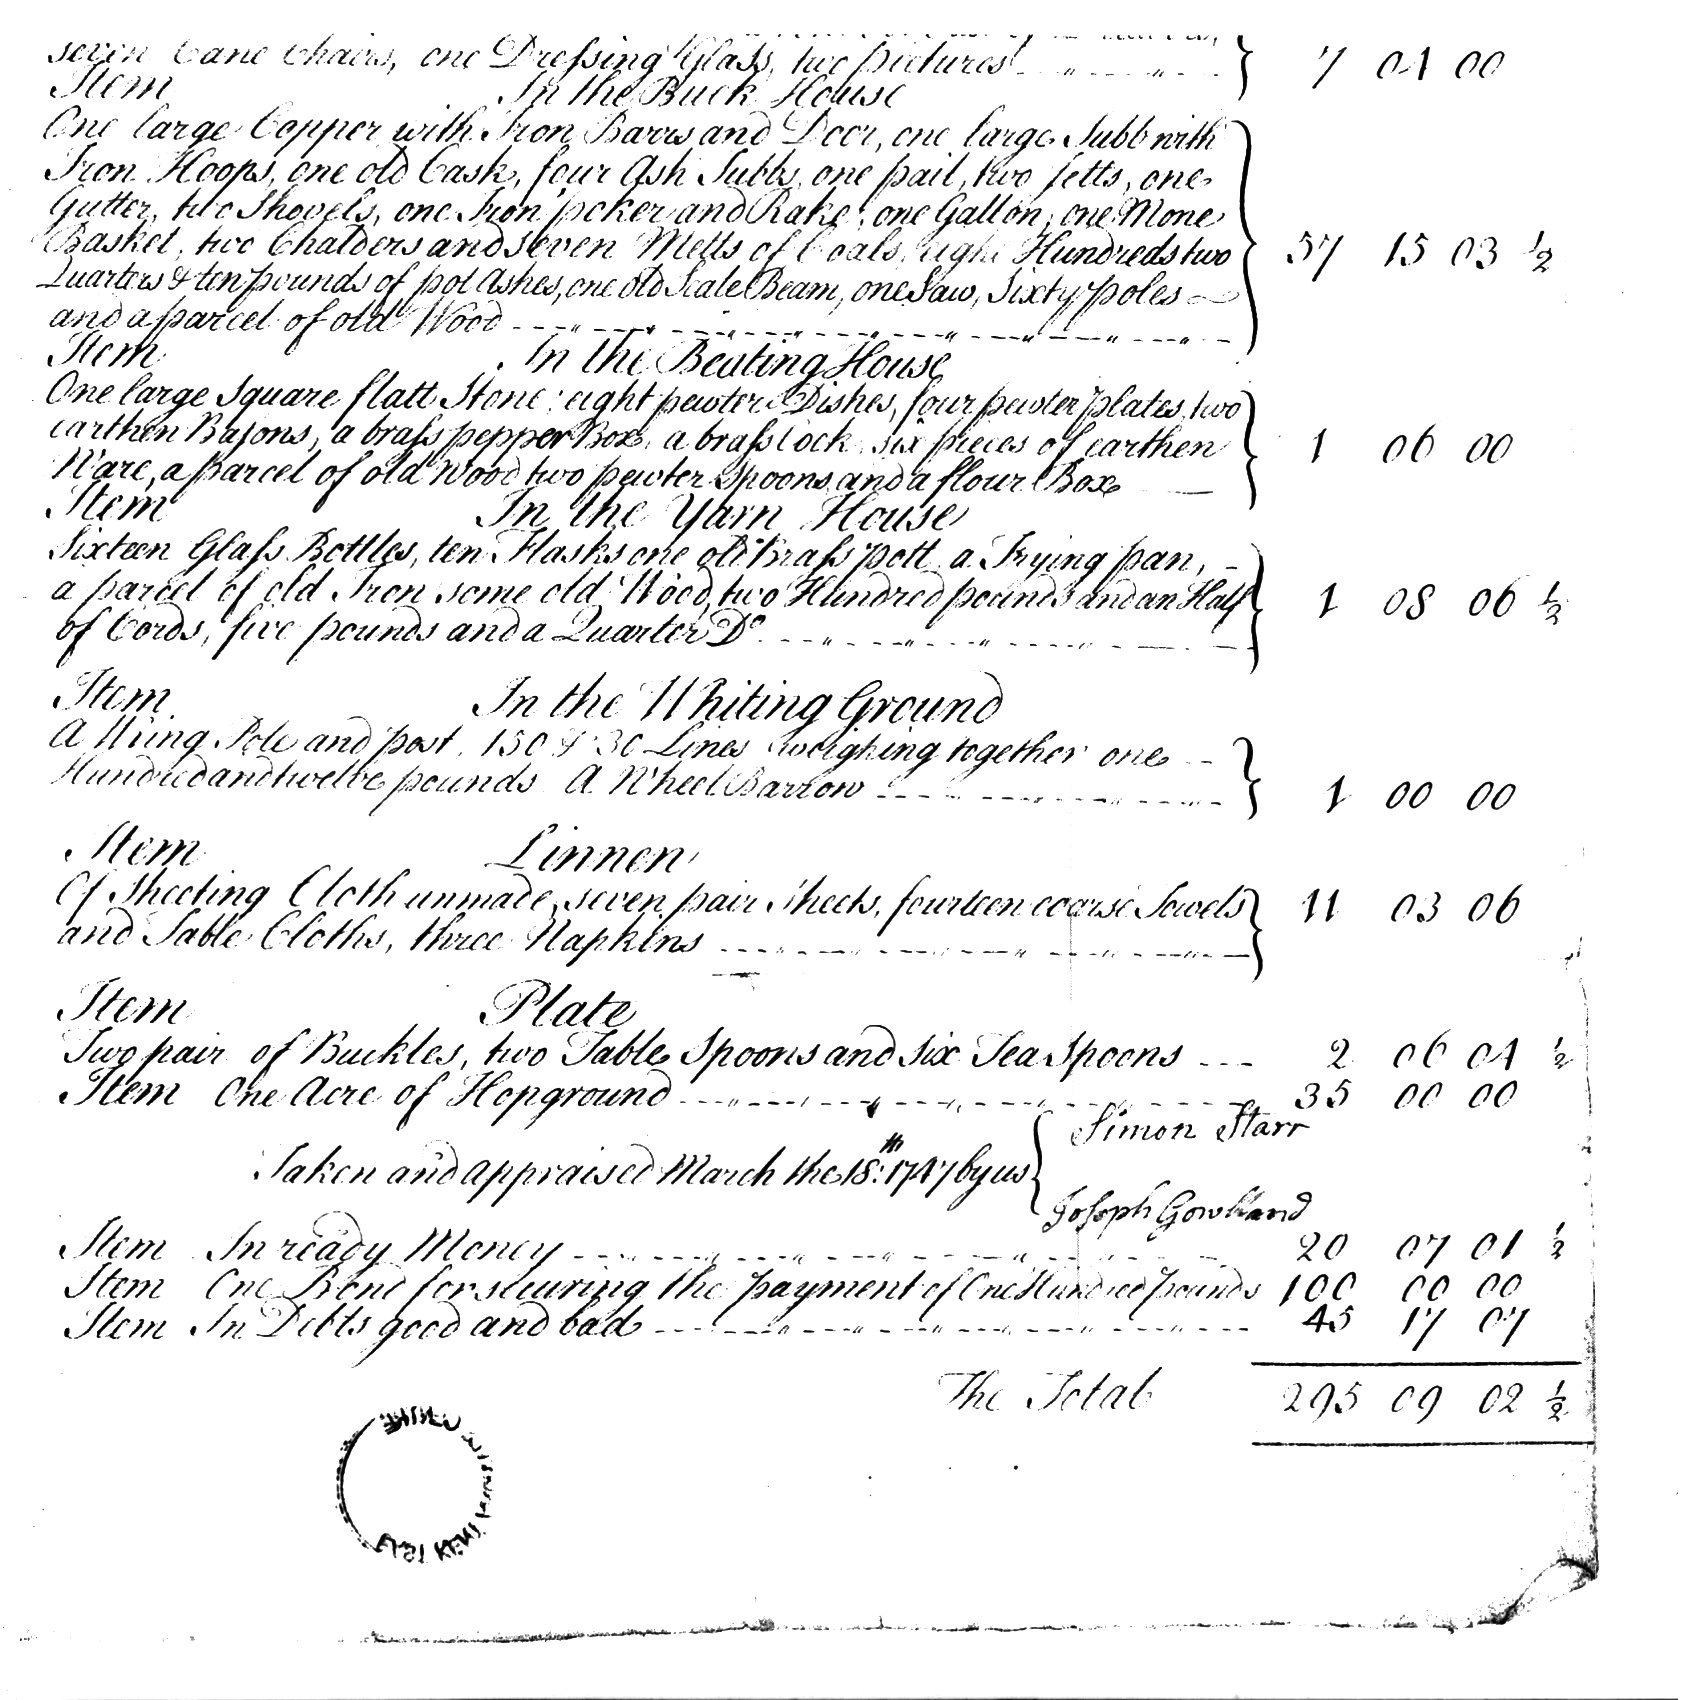 seven Cane Chairs, one Dressing Glass, two pictures } 7 04 00
Item In the Buck House
One large Copper with Iron Barrs and Door, one large Tubb with
Iron Hoops, one old Cask, four Ash Tubbs, one pail, two Jetts, one
Gutter, two Shovels, one Iron poker and Rake, one Gallon, one Mone
Basket, two Chalders and seven Metts of Coals, eight Hundreds two 57 15 03 ½
Quarters & ten pounds of pot Ashes, one old Scale Beam, one Saw, Sixty poles
and a parcel of old Wood
Item In the Beating House
One large Square flatt Stone, eight pewter Dishes, four pewter plates, two
earthen Basons, a brass pepper Box, a brass Cock, six pieces of earthen 1 06 00
Ware, a parcel of old Wood two pewter Spoons and a flour Box
Item In the Yarn House
Sixteen Glass Bottles, ten Flasks one old Brass pott, a Frying pan,
a parcel of old Iron some old Wood, two Hundred pounds and an Half 1 08 06 ½
of Cords, five pounds and a Quarter Do
Item In the Whiting Ground
A Wring Pole and post, 150 & 30 Lines weighing together one
Hundred and twelve pounds A Wheel Barrow 1 00 00
Item Linnen
Of Sheeting Cloth unmade, seven pair Sheets, fourteen coarse Towels 11 03 06
and Table Cloths, three Napkins
Item Plate
Two pair of Buckles, two Table Spoons and Six Tea Spoons 2 06 04 ½
Item One Acre of Hopground 35 00 00
Simon Starr
Taken and appraised March the 18th: 1747 by us
Joseph Gowland
Item In ready Money 20 07 01 ½
Item One Bond for securing the payment of One Hundred pounds 100 00 00
Item In Debts good and bad 45 17 07
The Total 295 09 02 ½